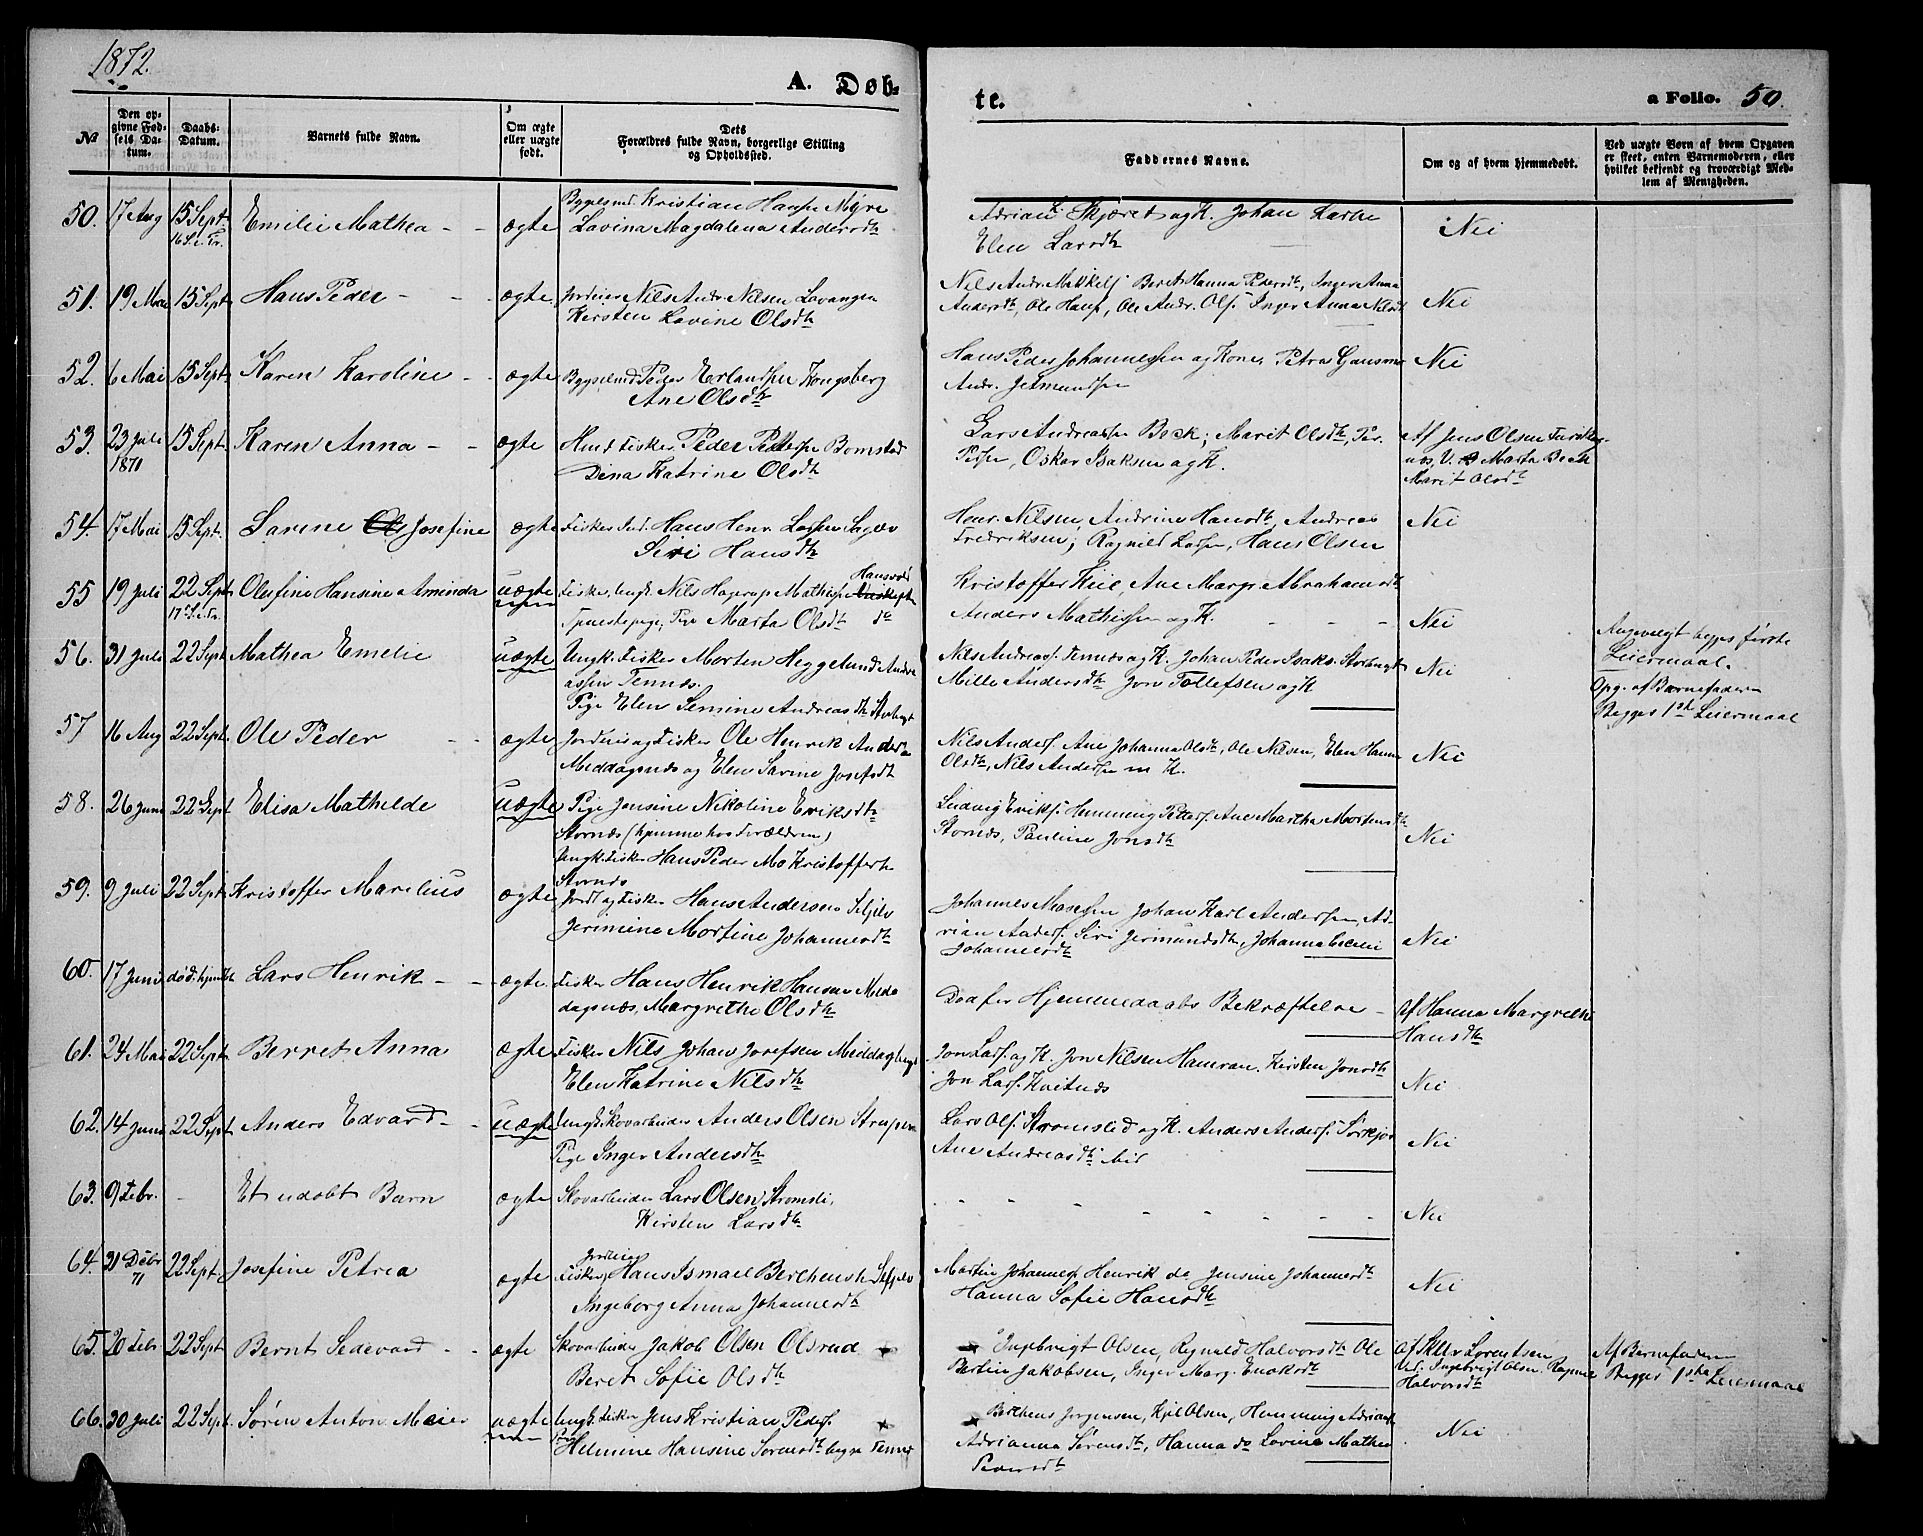 1872.
A. Døb-
te.
a Folio. 50.
No
Den op-
givne Fød-
sels Da-
tum.
Daabs-
Datum.
Barnets fulde Navn.
Om ægte
eller uægte
født.
Dets
Forældres fulde Navn, borgerlige Stilling
og Opholdssted.
Faddernes Navne.
Om og af hvem hjemmedøbt.
Ved uægte Børn af hvem Opgaven
er skeet, enten Barnemoderen, eller
hvilket bekjendt og troværdigt Med-
lem af Menigheden.
50. 17 Aug 15 Sept. Emilie Mathea - - ægte Bygselmd Kristian Hansen Myre
Lavina Magdalena Andersdtr
Adrian Skjæret og K. Johan Larsen
Elen Larsdtr
Nei
51. 19 Mai 15 Sept Hans Peder - - ægte Jordeier Nils Andr. Nilsen Lavangen
Kirsten Lovine Olsdtr
Nils Andr. Mikkels. Berit Hanna Pedersdtr, Inger Anna
Andersdtr, Ole Hans, Ole Andr. Ols. Inger Anna Nilsdtr
Nei
52. 6 Mai 15 Sept. Karen Karoline - - ægte Bygselmd Peder Erlandsen Kongsberg
Ane Olsdtr
Hans Peder Johannessen og Kone, Petra
Andr.
Nei
53. 23 Juli 15 Sept. Karen Anna - - ægte Huusmd Fisker Peder Pettersen Bomstad
1871
Dina Katrine Olsdtr
Lars Andreassen Beck; Marit Olsdtr, Per
Persen, Oskar Isaksen og K.
Af Jens Olsen
V. Marta Beck
Marit Olsdtr
54. 17 Mai 15 Sept. Sarine Josefine ægte Fisker Hans Henr. Larsen Sagelv
Siri Hansdtr
Henr. Nilsen, Andrine Hansdtr, Andreas
Fredriksen; Ragnild Larsen, Hans Olsen
Nei
55 19 Juli 22 Sept Olufine Hansine Aminda uægte Fisker, Ungk. Nils Hagerup Mathisen
Tjenestepige, Marta Olsdtr
Kristoffer Kiil, Ane Margr. Abrahamsdtr
Anders Mathissen og K. - - -
Nei
Angiveligt begges første
Leiermaal.
56. 31 Juli 22 Sept Mathea Emelie uægte Ungk. Fisker Morten Heggelund Andre
assen Tennæs.
Pige Elen Semine Andreasdtr
Nils Andreas. Tennæs og K. Johan Peder Isaks.
Mille Andersdtr Jon Tollefsen og K
Nei
Opg. af Barnefaderen
Begges 1ste Leiermaal
57 16 Aug 22 Sept. Ole Peder - - ægte Jordeier og Fisker Ole Henrik Anders
Meddagsnæs og Elen Sarine Josefsdtr
Nils Anders. Ane Johanna Olsdtr, Ole Nilsen, Elen Hanna
Olsdtr, Nils Andersen m K.
Nei
58. 26 Juni 22 Sept Elisa Mathilde uægte Pige Jensine Nikoline Eriksdtr
Stornæs (hjemme hos Forældrene)
Ungk. Fisker Hans Peder Mo Kristoffersen
Stornæs
Ludvig Eriks. Hemming Petters. Ane Martha Mortensdtr
Stornæs, Pauline Jonsdtr
Nei
59. 9 Juli 22 Sept Kristoffer Marelius ægte Jordl og Fisker Hans Andersen Seljelv
Jerimine Martine Johannesdtr
Johannes Mosesen Johan Karl Andersen, Ad-
rian Anders. Siri Jermundsdtr, Johanna Cecilie
Johannesdtr
Nei
60. 17 Juni død hjemdøbt Lars Henrik - - ægte. Fisker Hans Henrik Hansen Medd
dagsnæs, Margrethe Olsdtr
Død før Hjemmedaabs Bekræftelse -
Af Hanna Margrethe
Hansdtr
61. 24 Mai 22 Sept. Berret Anna ægte Fisker Nils Johan Josefsen Meddagsbugt
Elen Katrine Nilsdtr
Jon Lars. og K. Jon Nilsen Hamran. Kirsten Jonsdtr
Jon Lars. Kvitnæs
Nei
62. 14 Juni 22 Sept Anders Edvard - uægte Ungk. Skovarbeider Anders Olsen Strupen
Pige Inger Andersdtr
Lars Ols. Strømslid og K. Anders Anders. Sørkjos
Ane Andreasdtr ibid
Nei
63. 9 Febr. - Et udøbt Barn ægte Skovarbeider Lars Olsen Strømsli,
Kirsten Larsdtr
- - - - - - -
Nei
64. 21 Decbr 22 Sept. Josefine Petrea ægte Fisker, Hans Ismael Berthensen Seljelv
71
Jordeier
Ingeborg Anna Johannesdtr
Martin Johannes. Henrik do Jensine Johannesdtr
Hanna Sofie Hansdtr
Nei
65. 20 Febr 22 Sept Bernt Sedevard - - ægte Skovarbeider Jakob Olsen Olsrud
Beret Sofie Olsdtr
Ingebrigt Olsen, Ragnild Halvorsdtr Ole
Bertin Jakobsen, Inger Marg. Enoksdtr
Af Lorentsen
Ingebrigt Olsen. Ragnild
Halvorsdtr
Af Barnefaderen
Begges 1ste Leiermaal
66. 30 Juli 22 Sept. Søren Anton Meier uægte Ungk. Fisker Jens Kristian Peders.
Pige Helmine Hansine Sørensdtr begge Tennes
Berthens Jørgensen, Kjel Olsen, Hemming Adrians.
Adrianna Sørensdtr, Hanna do Lovine Mathea
Pedersdtr
Nei